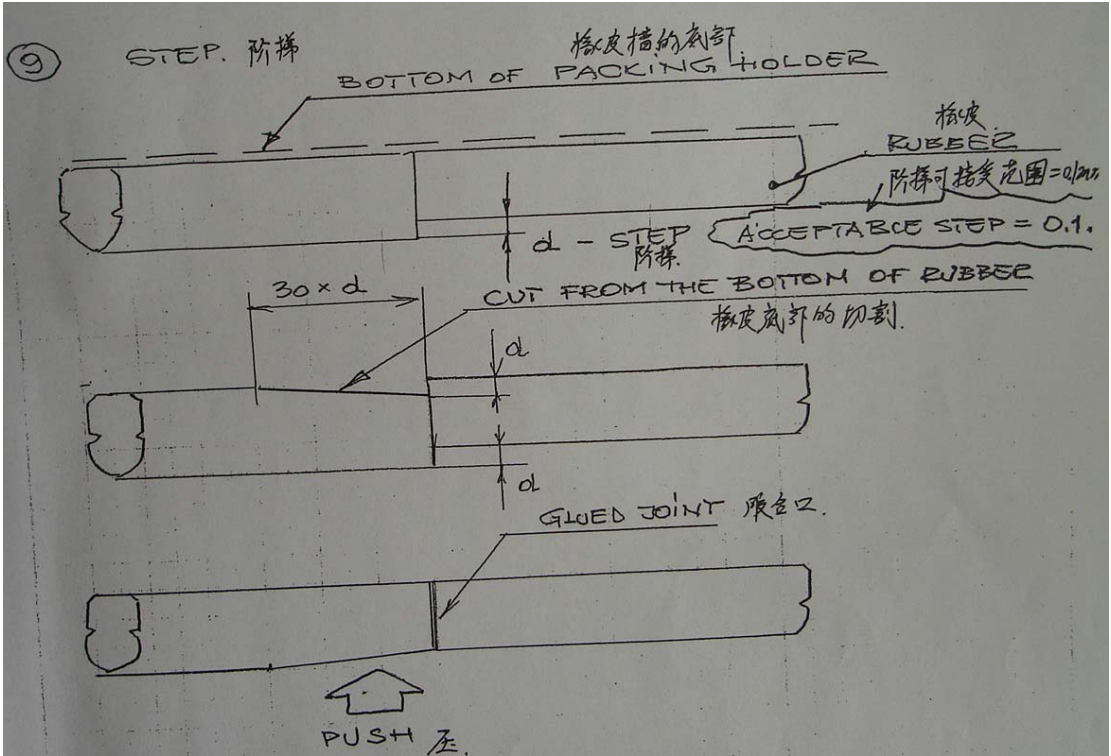 9
STEP. 阶梯
橡皮槽的底部
BOTTOM OF PACKING HOLDER
橡皮
RUBBER
阶梯可接受范围=0.1mm
ACCEPTABLE STEP = 0.1.
d - STEP
阶梯.
30 × d
CUT FROM THE BOTTOM OF RUBBER
橡皮底部的切割.
d
d
GLUED JOINT 胶合口.
PUSH 压.